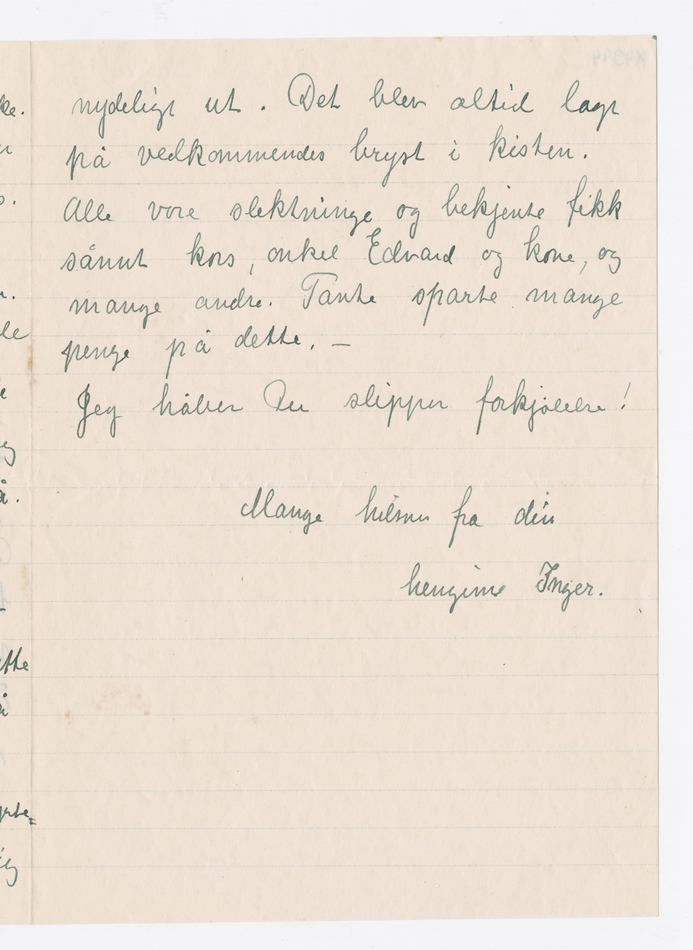 nydeligt ut. Det blev altid lagt
på vedkommendes bryst i kisten.
Alle vore slektninge og bekjente fikk
sånnt kors, onkel Edvard og kone, og
mange andre. Tante sparte mange
penge på dette. —
Jeg håber Du slipper forkjølelse!
Mange hilsner fra din
hengivne Inger.
ke.
s.
å.
atte
å